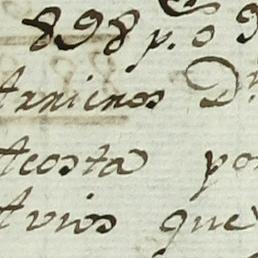 898 p. o 9
Arnienos Dn
Acosta por
Avios que